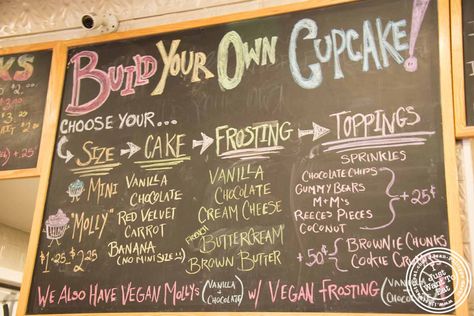 BUILD YOUR OWN CUPCAKE!
CHOOSE YOUR...
SIZE → CAKE → FROSTING → TOPPINGS
MINI
"MOLLY"
$1.25 $2.25
VANILLA
CHOCOLATE
RED VELVET
CARROT
BANANA
(NO MINI SIZE!!)
VANILLA
CHOCOLATE
CREAM CHEESE
FRENCH
BUTTERCREAM
BROWN BUTTER
SPRINKLES
CHOCOLATE CHIPS
GUMMY BEARS
M+M'S
REECE'S PIECES
COCONUT
+25¢
+50¢
BROWNIE CHUNKS
COOKIE
WE ALSO HAVE VEGAN MOLLYS (VANILLA + CHOCOLATE) W/ VEGAN FROSTING (VANILLA
Just
Want To
Eat